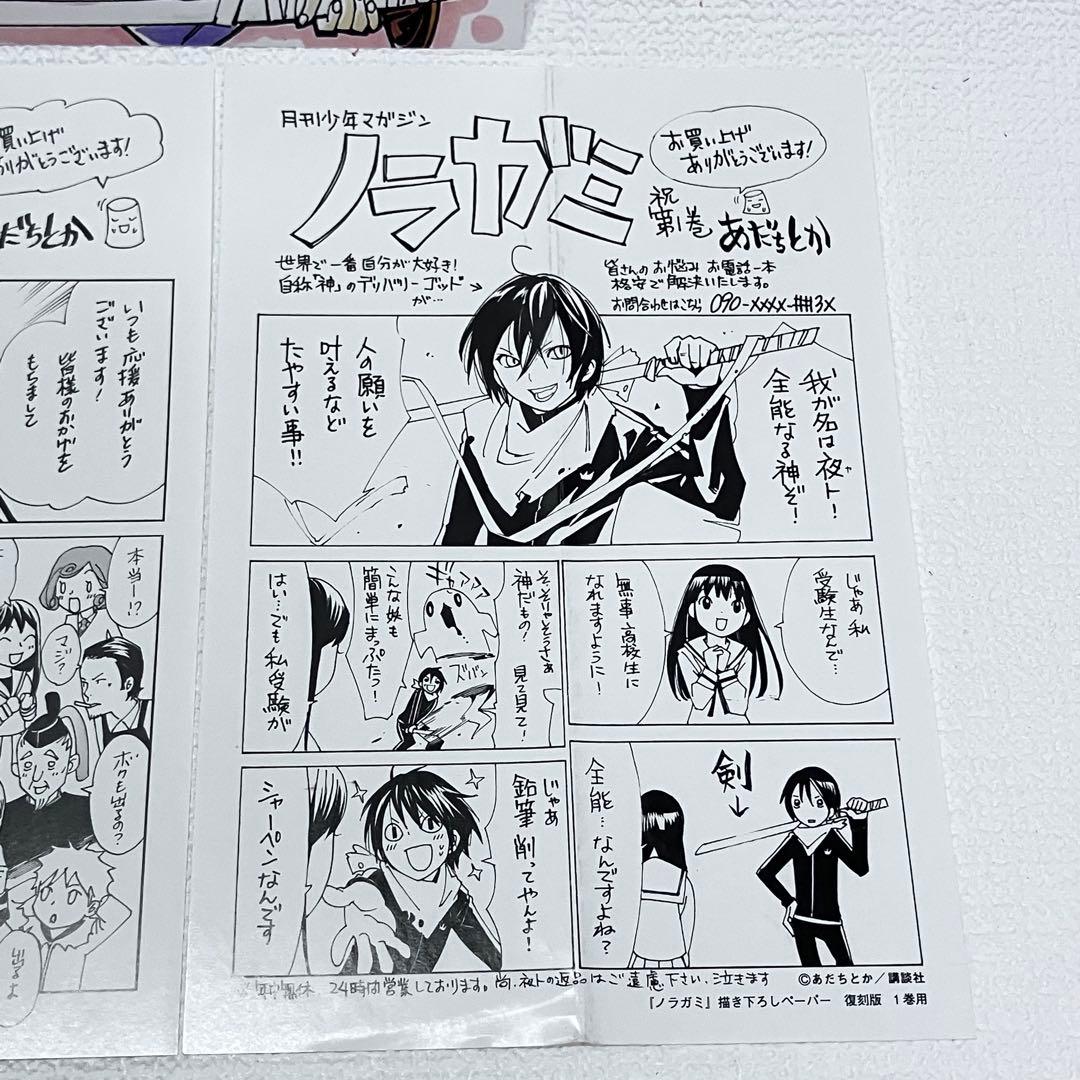 買い上げ
ありがとうございます!
あだちとか
いつも応援ありがとう
ございます!
皆様のおかげを
もちまして
本当ー!?
マジ?
ボクも出るの?
出るよ
月刊少年マガジン
ノラガミ
祝
第1巻
お買い上げ
ありがとうございます!
あだちとか
世界で一番自分が大好き!
自称「神」のデリバリーゴッド
が…
皆さんのお悩み お電話一本
格安で解決いたします。
お問合わせはこちら 090-xxxx-##3x
我が名は夜ト!
ヤ
全能なる神ぞ!
人の願いを
叶えるなど
たやすい事!!
じゃあ私
受験生なんで…
無事高校生に
なれますように!
全能…なんですよね?
剣
そ、そりゃそうさぁ
神だもの! 見て見て!
ギャアアア
ズバン
こんな妖も
簡単にまっぷたつ!
はい…でも私受験が
じゃあ
鉛筆削ってやんよ!
シャーペンなんです
年中無休 24時間営業しております。尚、夜トの返品はご遠慮下さい、泣きます
©あだちとか/講談社
『ノラガミ』描き下ろしペーパー 復刻版 1巻用